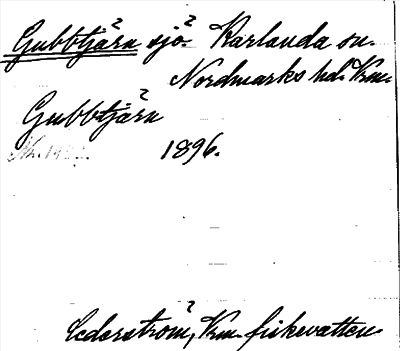 Gubbtjärn sjö. Karlanda sn.
Nordmarks hd. Krm.
Gubbtjärn
1896.
Cederström, Krm. fiskevatten.